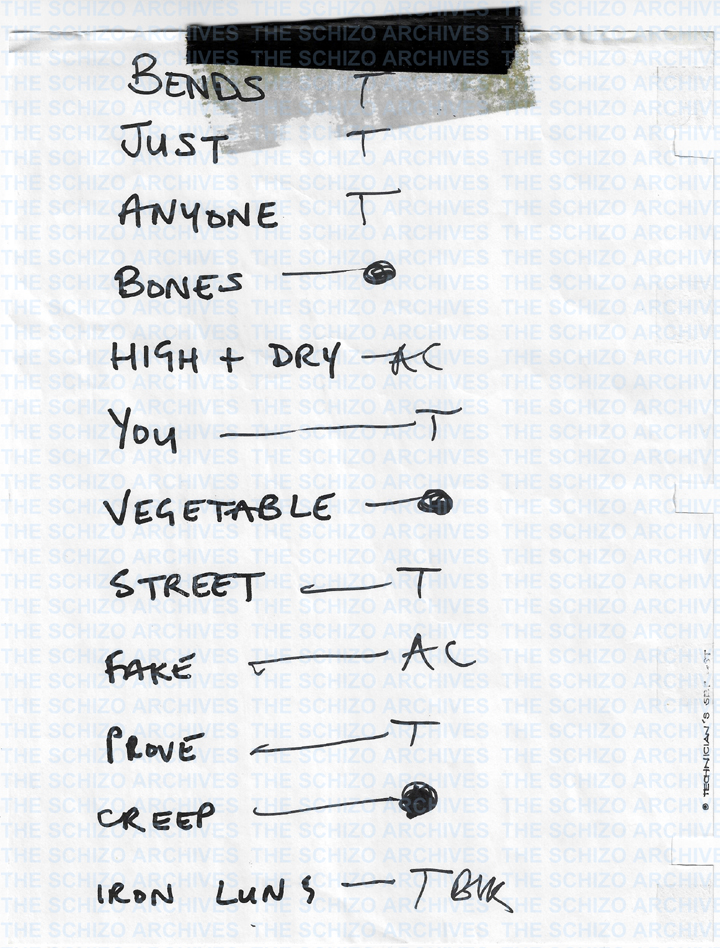 BENDS T
JUST T
ANYONE T
BONES
HIGH + DRY AC
YOU T
VEGETABLE
STREET T
FAKE AC
PROVE T
CREEP
IRON LUNG T
THE SCHIZO ARCHIVES
TECHNICIAN'S